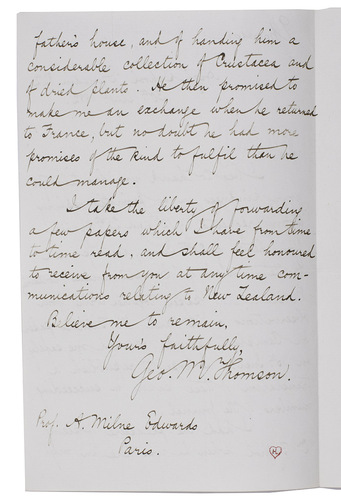 father's house, and of handing him a
considerable collection of Crustacea and
of dried plants. He then promised to
make me an exchange when he returned
to France, but no doubt he had more
promises of the kind to fulfil than he
could manage.
I take the liberty of forwarding
a few papers which I have from time
to time read, and shall feel honoured
to receive from you at any time com-
munications relating to New Zealand.
Believe me to remain,
Yours faithfully,
Geo. M. Thomson.
Prof. A. Milne Edwards
Paris.